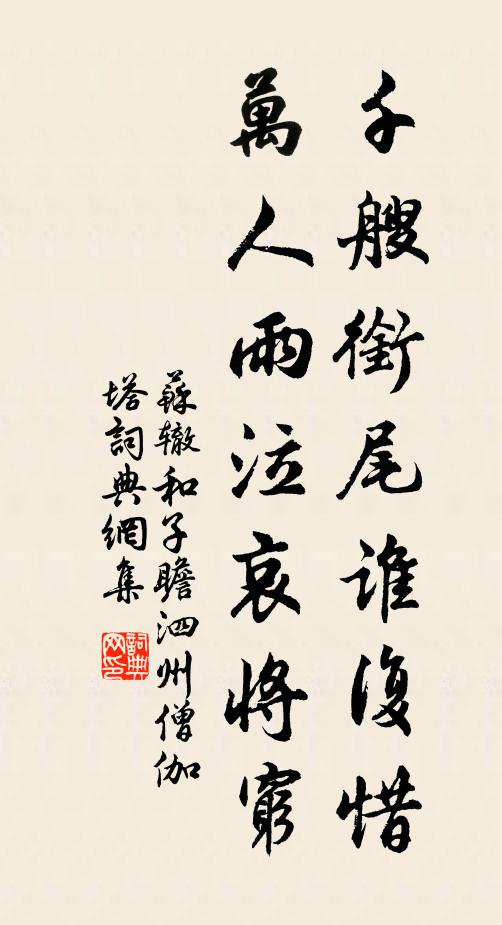 千艘銜尾誰復惜
萬人雨泣哀將窮
蘇辙和子瞻泗州僧伽
塔詞典網集
詞典
网印